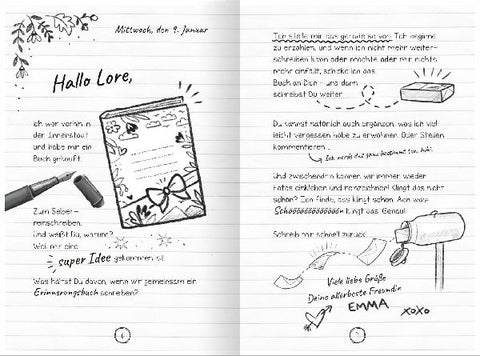 Mittwoch, den 9. Januar
Hallo Lore,
ich war vorhin in
der Innenstadt
und habe mir ein
Buch gekauft.
Zum Selber-
reinschreiben.
Und weißt Du, warum?
Weil mir eine
super Idee gekommen ist.
Was hältst Du davon, wenn wir gemeinsam ein
Erinnerungsbuch schreiben?
6
Ich stelle mir das gerade so vor: Ich beginne
zu erzählen, und wenn ich nicht mehr weiter-
schreiben kann oder möchte oder mir nichts
mehr einfällt, schicke ich das
Buch an Dich – und dann
schreibst Du weiter.
Du kannst natürlich auch ergänzen, was ich viel-
leicht vergessen habe zu erwähnen. Oder Stellen
kommentieren.
Ich werde das ganz bestimmt tun
Und zwischendrin können wir immer wieder
Fotos einkleben und reinzeichnen! Klingt das nicht
schön? Ich finde, das klingt schön. Ach was:
klingt das. Genau!
Schreib mir schnell zurück.
Viele liebe Grüße
Deine allerbeste Freundin
EMMA
XOXO
7